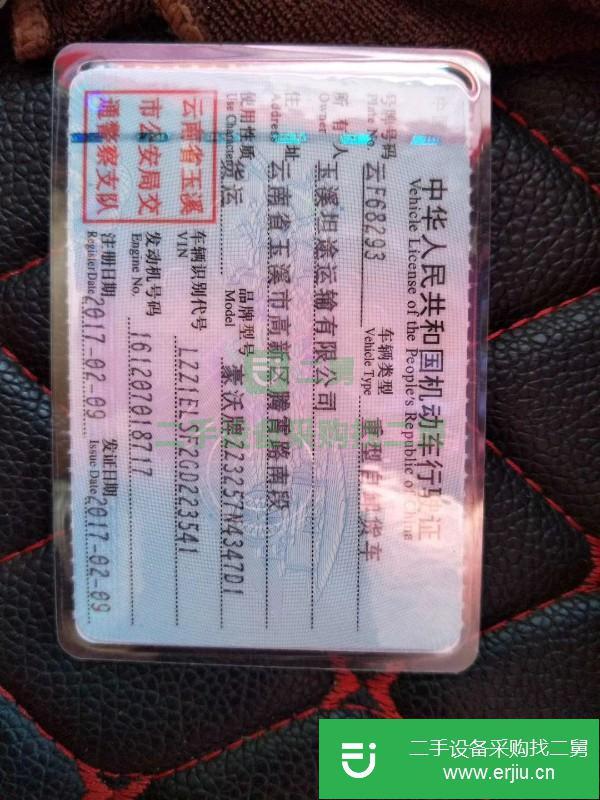 中华人民共和国机动车行驶证
Vehicle License of the People's Republic of China
号牌号码 云F68293 车辆类型 重型自卸货车
Plate No. Vehicle Type
所有人 玉溪坦途运输有限公司
Owner
住址 云南省玉溪市高新区腾霄路南段
Address
使用性质 货运 品牌型号 豪沃牌ZZ3257N4347D1
Use Character Model
云南省玉溪
市公安局交
通警察支队
车辆识别代号 LZZ1ELSF2GD223541
VIN
发动机号码 161207018717
Engine No.
注册日期 2017-02-09 发证日期 2017-02-09
Register Date Issue Date
二舅
二手设备采购找二
二手设备采购找二舅
www.erjiu.cn